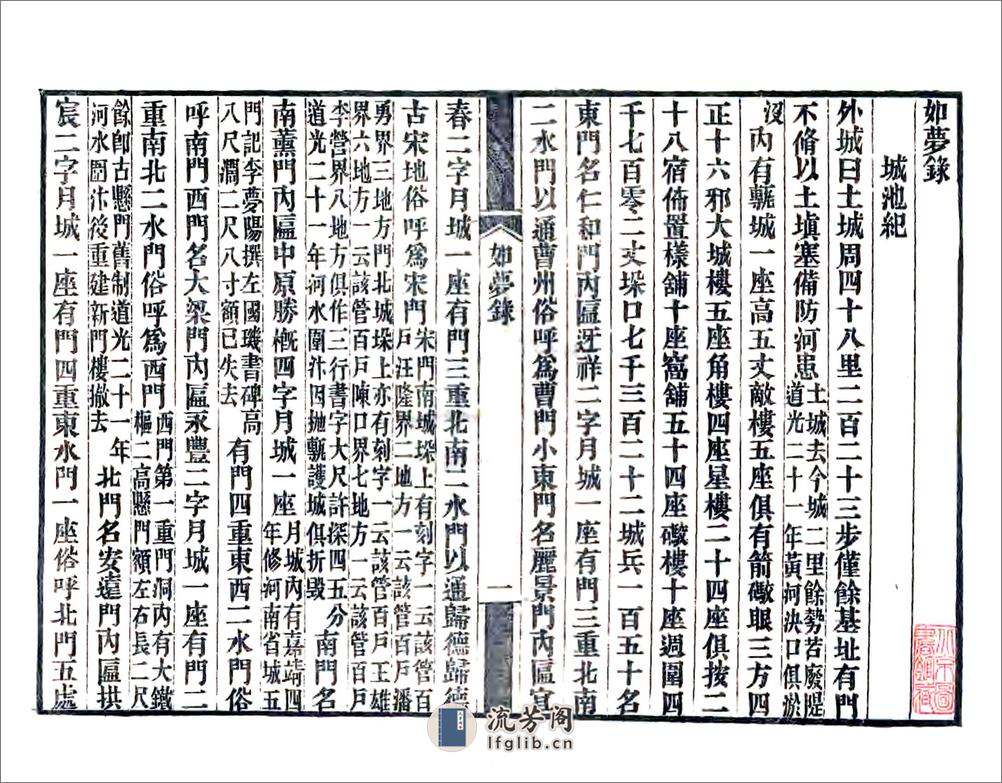 如夢錄
城池紀
外城曰土城周四十八里二百二十三步僅餘基址有門
不脩以土塡塞備防河患土城去今城二里餘勢若廢隄道光二十一年黃河決口俱淤
沒內有甎城一座高五丈敵樓五座俱有箭礮眼三方四
正十六邪大城樓五座角樓四座星樓二十四座俱按二
十八宿佈置樣舖十座窩舖五十四座礮樓十座週圍四
千七百零二丈垛口七千三百二十二城兵一百五十名
東門名仁和門內匾迓祥二字月城一座有門三重北南
二水門以通曹州俗呼爲曹門小東門名麗景門內匾宜
如夢錄
一
春二字月城一座有門三重北南二水門以通歸德歸德
古宋地俗呼爲宋門宋門南城垛上有刻字一云該管百戶汪隆界二地方一云該管百戶潘
勇界三地方門北城垛上亦有刻字一云該管百戶王雄界六地方一云該管百戶陳口界七地方一云該管百戶
李營界八地方俱作三行書字大尺許深四五分道光二十一年河水圍汴因拋甎護城俱折毀南門名
南薰門內匾中原勝槪四字月城一座月城內有嘉靖四年修河南省城五
門記李夢陽撰左國璣書碑高八尺濶二尺八寸額已失去有門四重東西二水門俗
呼南門西門名大梁門內匾永豐二字月城一座有門二
重南北二水門俗呼爲西門西門第一重門洞內有大鐵樞二高懸門額左右長二尺
餘卽古懸門舊制道光二十一年河水圍汴後重建新門樓撤去北門名安遠門內匾拱
宸二字月城一座有門四重東水門一座俗呼北門五處
流芳閣
lfglib.cn